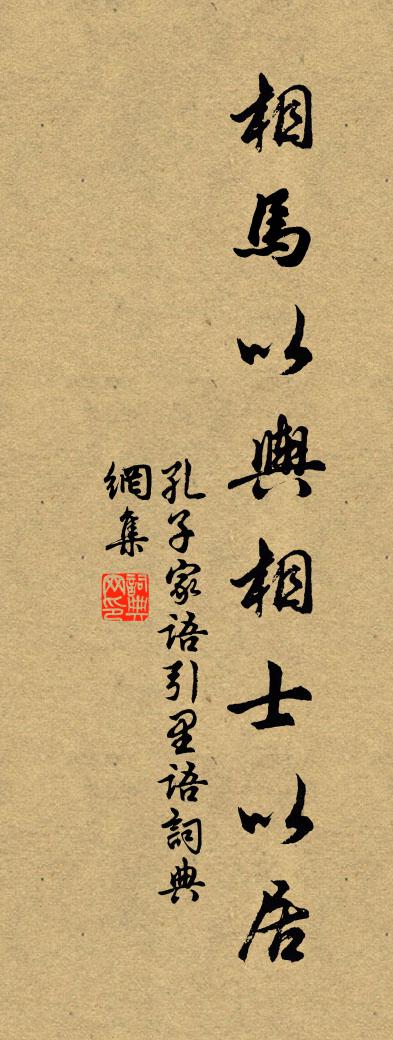 相馬以輿相士以居
孔子家語引里語詞典
網集
詞典
网印